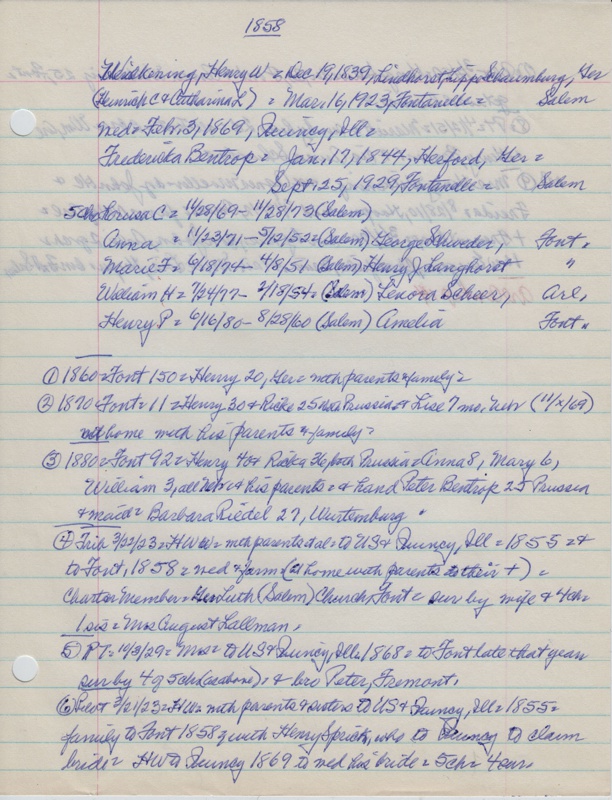 1858
Weidkening, Henry W = Dec 19, 1839, Lindhorst, Lippe Schaumburg, Ger
(Heinrich C & Catharina L) = Mar. 16, 1923, Fontanelle = Salem
wed = Feb. 3, 1869, Quincy, Ill =
Fredericka Bentrop = Jan. 17, 1844, Herford, Ger =
Sept. 25, 1929, Fontanelle = Salem
5 chs Louisa C = 11/28/69 - 11/28/73 (Salem)
Anna = 11/23/71 - 5/12/52 = (Salem) George Schroeder, Font =
Marie F = 6/18/74 - 4/8/51 (Salem) Henry J. Langhorst "
William H = 7/24/77 - 2/18/54 = (Salem) Lenora Scheer, Arl,
Henry P = 6/16/80 - 8/28/60 (Salem) Amelia Font "
① 1860 = Font 150 = Henry 20, Ger = with parents & family =
② 1870 Font = 11 = Henry 30 & Ricke 25 both Prussia & Lise 7 mo. Nebr (11/x/69)
home with his parents & family =
③ 1880 = Font 92 = Henry 40 & Ricka 36, both Prussia = Anna 8, Mary 6,
William 3, all Nebr & his parents = & hand Peter Bentrop 25 Prussia
& maid = Barbara Riedel 27, Wurtemburg "
④ Trib 3/22/23 = HW W = with parents to US & Quincy, Ill = 1855 = &
to Font, 1858 = wed & farm = (at home with parents to their +) =
Charter Member = Luth (Salem) Church, Font = sur by wife & 4 ch =
1 sis = Mrs August Lallman,
⑤ PT = 10/3/29 = Mrs = to US & Quincy, Ill, 1868 = to Font late that year
sur by 4 of 5 ch (as above) = & bro Peter, Fremont,
⑥ 3/21/23 = HW = with parents & sisters to US & Quincy, Ill = 1855 =
family to Font 1858 with Henry Sprick, who to Quincy to claim
bride = HW to Quincy 1869 to wed his bride = 5 ch = 4 sur,